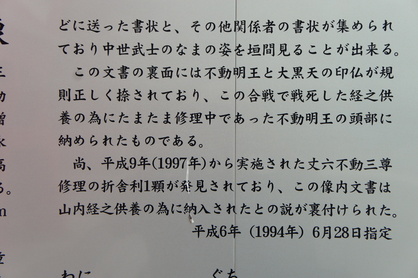 どに送った書状と、その他関係者の書状が集められ
ており中世武士のなまの姿を垣間見ることが出来る。
この文書の裏面には不動明王と大黒天の印仏が規
則正しく捺されており、この合戦で戦死した経之供
養の為にたまたま修理中であった不動明王の頭部に
納められたものである。
尚、平成9年(1997年)から実施された丈六不動三尊
修理の折舎利1顆が発見されており、この像内文書は
山内経之供養の為に納入されたとの説が裏付けられた。
平成6年(1994年)6月28日指定
わに ぐち